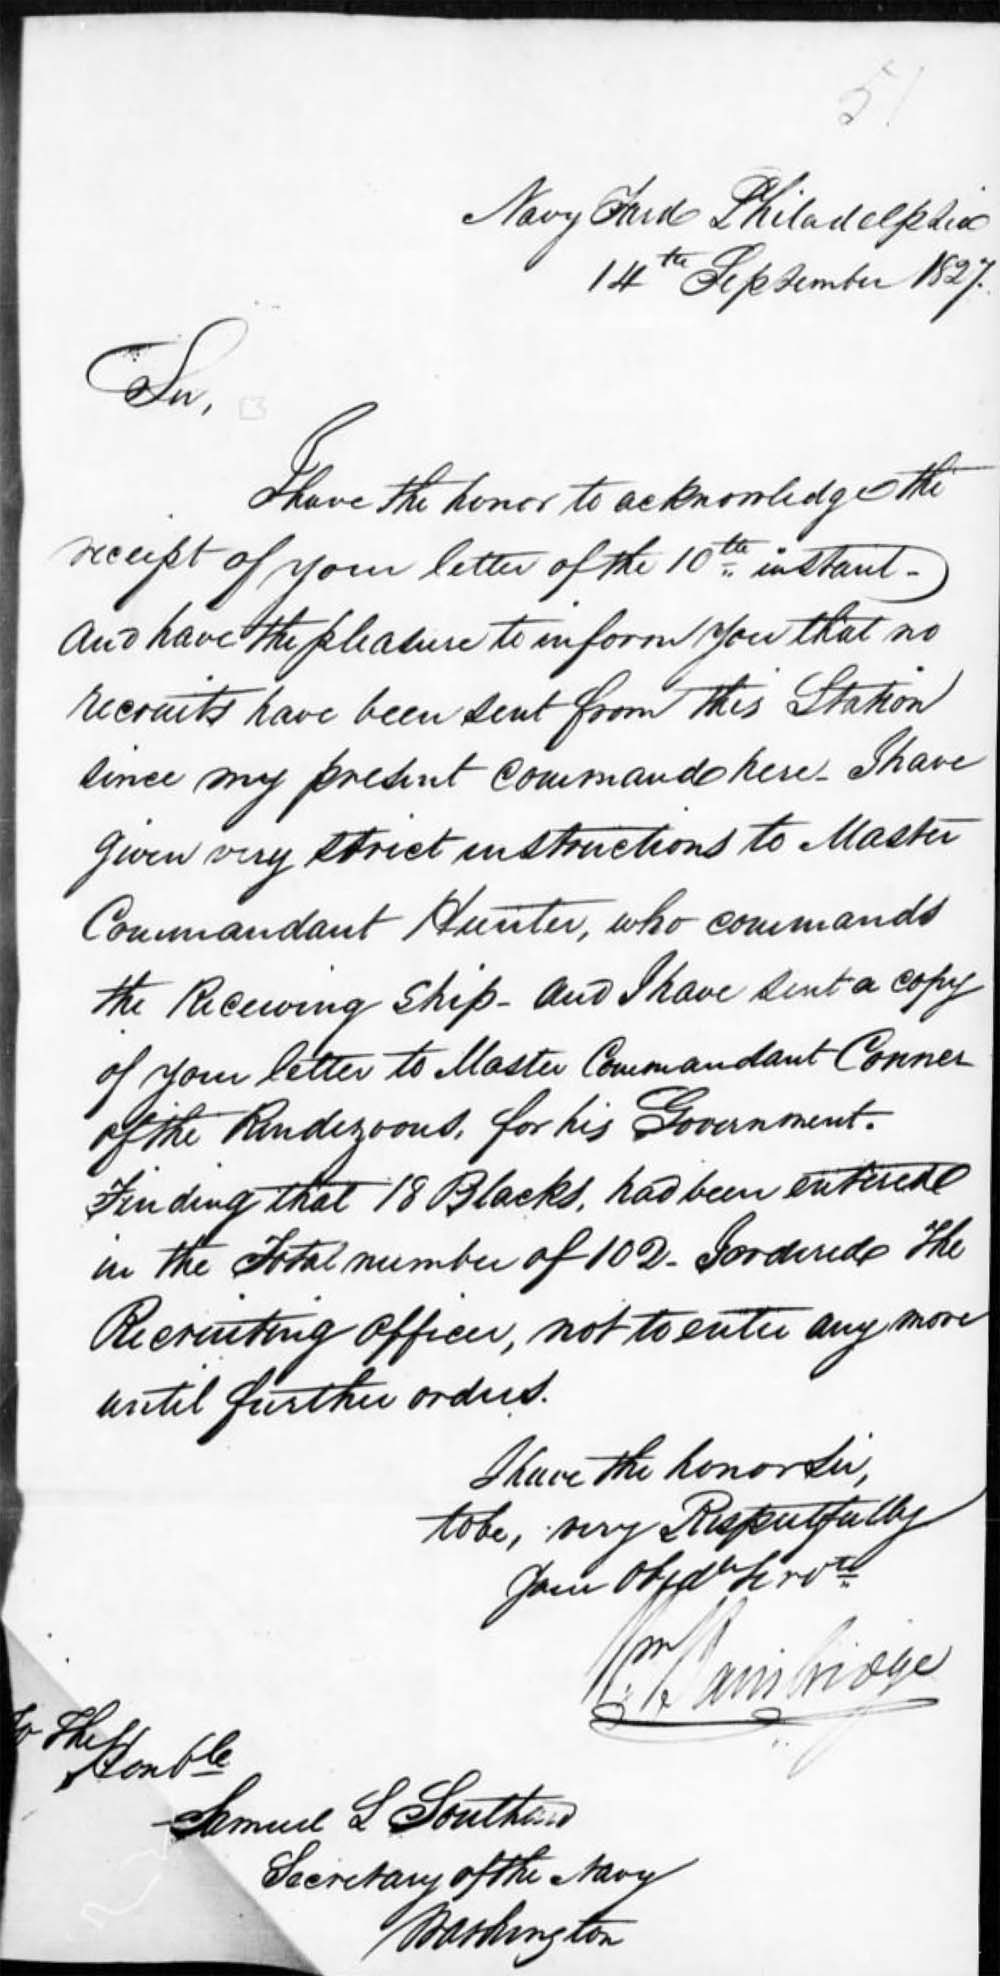 51
Navy Yard Philadelphia
14th September 1827.
Sir,
I have the honor to acknowledge the
receipt of your letter of the 10th instant -
and have the pleasure to inform you that no
recruits have been sent from this Station
since my present command here - I have
given very strict instructions to Master
Commandant Hunter, who commands
the Receiving Ship - and I have sent a copy
of your letter to Master Commandant Conner
of the Rendezvous, for his Government.
Finding that 18 Blacks, had been entered
in the Total number of 102 - I ordered the
Recruiting officer, not to enter any more
until further orders.
I have the honor Sir,
to be, very Respectfully
Your Obedt Servt
Wm Bainbridge
To The
Honble
Samuel L Southard
Secretary of the Navy
Washington